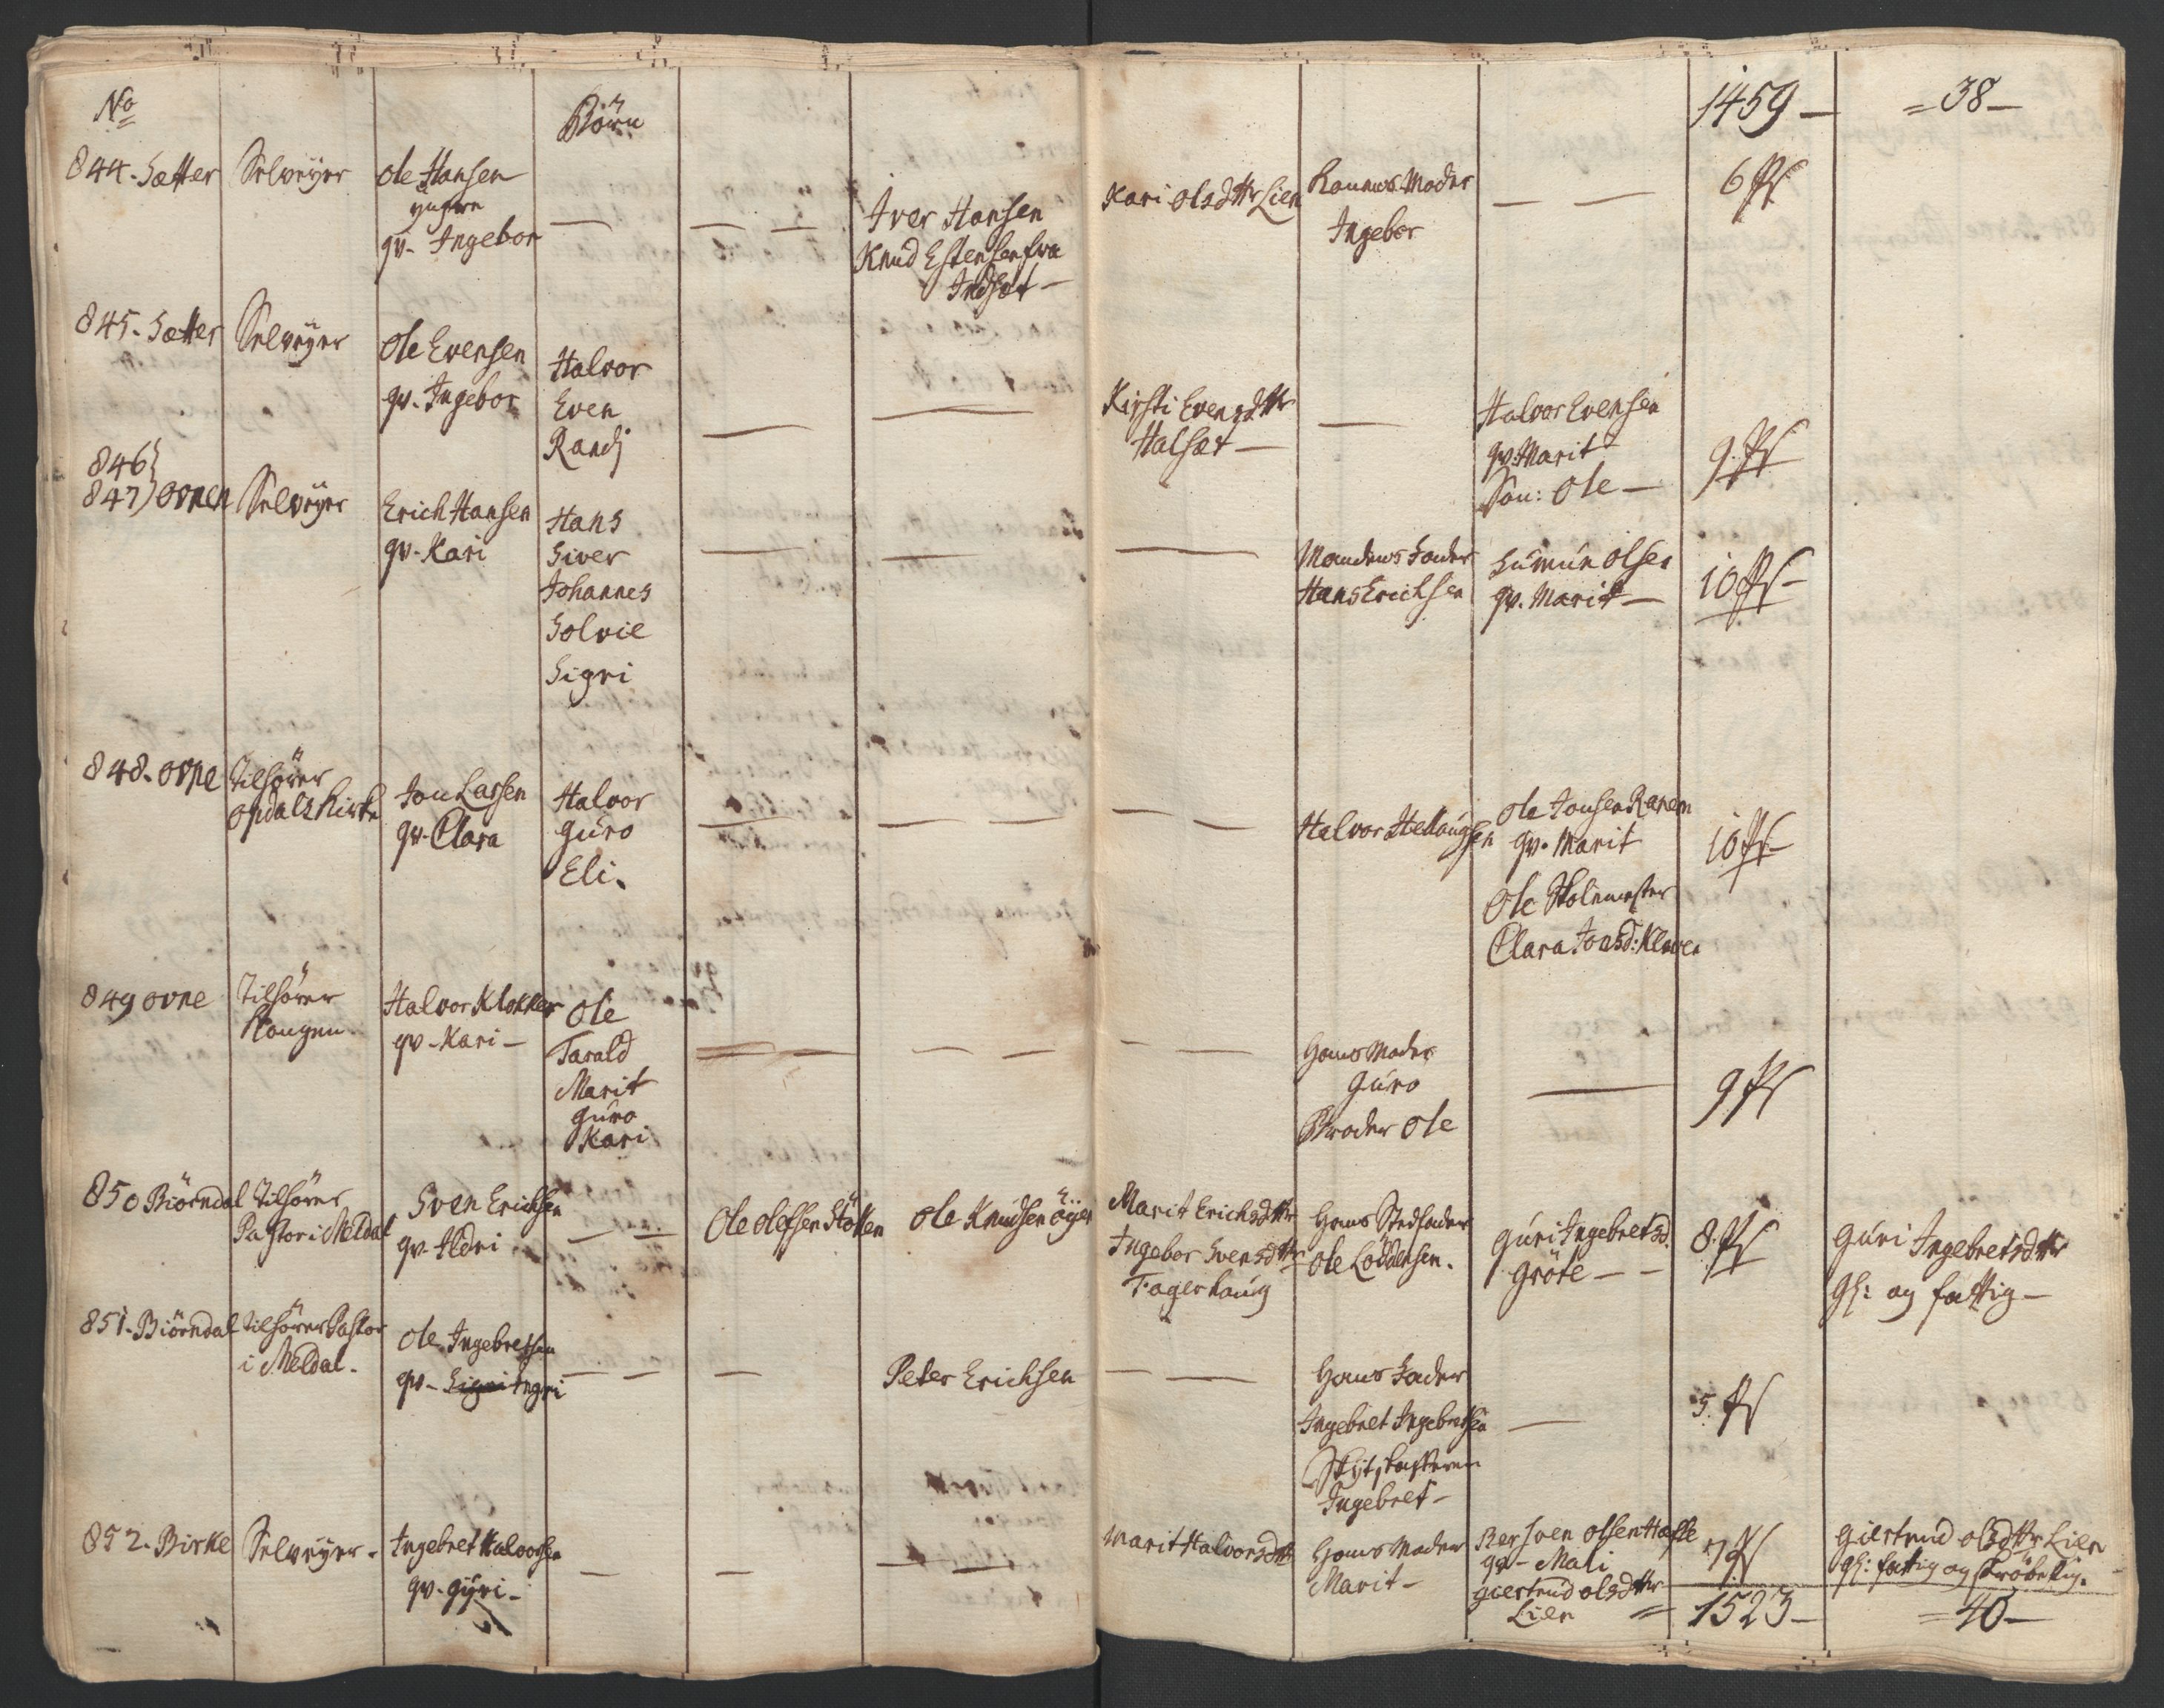 No
Börn
1459 —
= 38 —
844. Sætter
Selveÿer
Ole Hansen
yngre
qv. Ingebor
— — —
Iver Hansen
Knud Estensen fra
Indset —
Kari Olsdttr Lien
Konens Moder
Ingebor
— —
6 Ps
845. Sætter
Selveÿer
Ole Evensen
qv. Ingebor
Halvor
Even
Randj
—
—
Kirsti Evensdttr
Halset —
—
Halvor Evensen
qv. Marit
Søn: Ole —
9. Ps
846
847) Ovnen
Selveÿer
Erich Hansen
qv. Kari
Hans
Siver
Johannes
Solvie
Sigri
—
—
—
Mandens Fader
Hans Erichsen
Simun Olsen
qv. Marit —
10 Ps —
848. Ovne
Tilhører
Opdals Kirke
Jon Larsen
qv. Clara
Halvor
Guro
Eli.
—
— —
— —
Halvor Stellaugsen
Ole Jonsen Ranem
qv. Marit
Ole Skolemester
Clara Jonsd: Kleven
10 Ps —
849 Ovne
Tilhører
Kongen.
Halvor Klokker
qv. Kari —
Ole
Tarald
Marit
Guro
Kari
— —
— —
— —
Hans Moder
Guro
Broder Ole
—
9 Ps
850 Biörndal
Tilhører
Pastor i Meldal
Sven Erichsen
qv. Aldri
— —
Ole Olefsen Stölen
Ole Knudsen Öÿen
Marit Erichsdttr
Ingebor Svensdttr
Fagerhaug
Hans Stedfader
Ole Loddensen.
Guri Ingebretsd.
Gröte — —
8. Ps
Guri Ingebretsdttr
gl: og fattig —
851. Biörndal
Tilhører Pastor
i Meldal.
Ole Ingebretsen
qv — Sigri Ingri
— —
—
Peter Erichsen
— —
Hans Fader
Ingebret Ingebretsen
Skÿtskafferen
Ingebret —
—
5. Ps
852. Birke
Selveÿer.
Ingebret Halvorsen
qv. Gÿri —
—
—
— —
Marit Halvorsdttr
Hans Moder
Marit —
Bersven Olsen Hæfte
qv — Mali
Giertrud Olsdttr
Lien
7 Ps
Giertrud Olsdttr Lien
gl: fattig og skröbelig.
= 1523 —
= 40 —